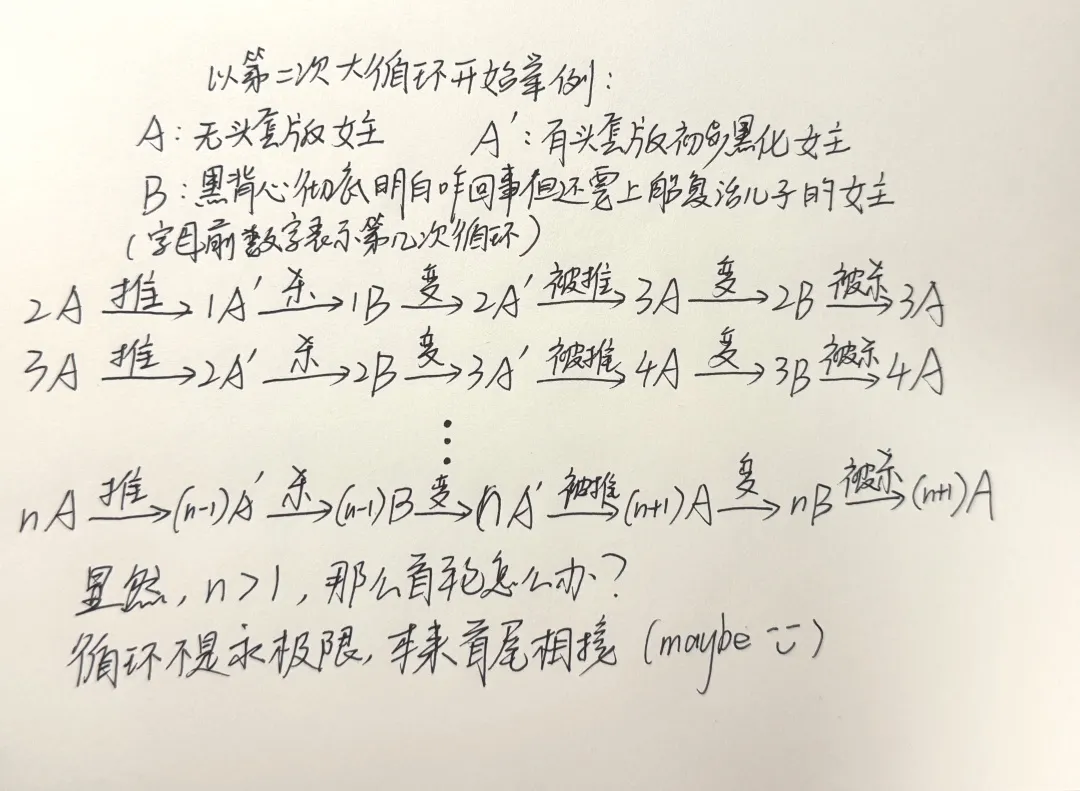 以第二次大循环开始举例:
A:无头套版女主 A':有头套版初步黑化女主
B:黑背心彻底明白咋回事但还要上船复活儿子的女主
(字母前数字表示第几次循环)
2A 推→ 1A' 杀→ 1B 变→ 2A' 被推→ 3A 变→ 2B 被杀→ 3A
3A 推→ 2A' 杀→ 2B 变→ 3A' 被推→ 4A 变→ 3B 被杀→ 4A
⋮
nA 推→ (n-1)A' 杀→ (n-1)B 变→ nA' 被推→ (n+1)A 变→ nB 被杀→ (n+1)A
显然, n>1, 那么首轮怎么办?
循环不是求极限, 本来首尾相接 (maybe